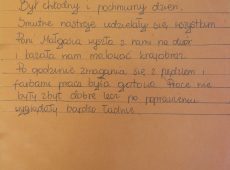 Był chłodny i pochmurny dzień.
Smutne nastroje udzielały się wszystkim.
Pani Małgosia wyszła z nami na dwór
i kazała nam malować krajobraz.
Po godzinie zmagania się z pędzlem i
farbami praca była gotowa. Prace nie
były zbyt dobre lecz po poprawieniu
wyglądały bardzo ładnie.